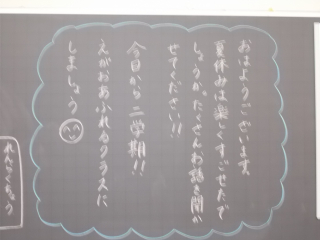 おはようございます。
夏休みは楽しくすごせたで
しょうか。たくさんお話を聞か
せてください!!
今日から二学期!!
えがおあふれるクラスに
しましょう
れんらくちょう